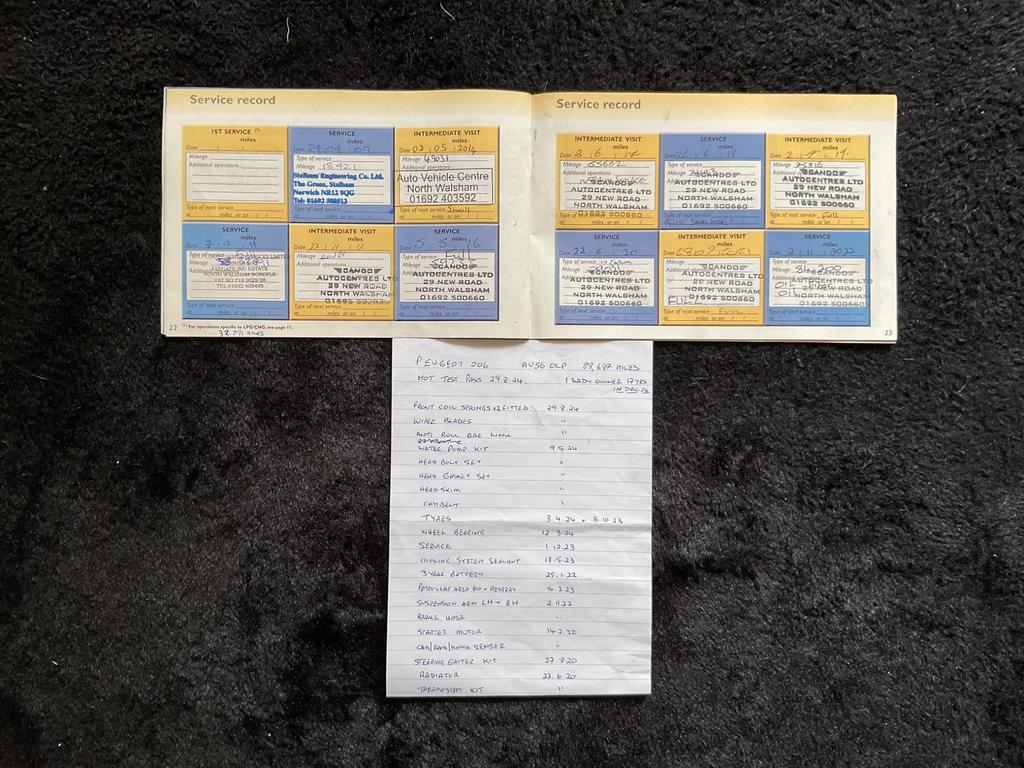 Service record
1ST SERVICE (1)
miles
Date / /
Mileage
Additional operations
Type of next service
at miles or on / /
SERVICE
miles
Date 24.09.09
Type of service
Mileage 18421
Stalham Engineering Co. Ltd.
The Green, Stalham
Norwich NR12 9QG
Tel: 01692 580513
Type of next service
at miles or on / /
INTERMEDIATE VISIT
miles
Date 03/05/2014
Mileage 49031
Additional operations
Auto Vehicle Centre
North Walsham
01692 403592
Type of next service Small
at miles or on / /
SERVICE
miles
Date 7.9.11
Type of service
Mileage
NORTH WALSHAM NORFOLK
VAT NO
TEL 01692 405495
Type of next service
at miles or on / /
INTERMEDIATE VISIT
miles
Date
Mileage
Additional operations
SCANDOS
AUTOCENTRES LTD
29 NEW ROAD
NORTH WALSHAM
Type of next service
at miles or on / /
SERVICE
miles
Date 5.5.16
Type of service Full
Mileage
SCANDOS
AUTOCENTRES LTD
29 NEW ROAD
NORTH WALSHAM
01692 500660
Type of next service
at miles or on / /
22 (1) For operations specific to LPG/CNG, see page 11.
Service record
INTERMEDIATE VISIT
miles
Date 8.6.17
Mileage 65662
Additional operations
SCANDOS
AUTOCENTRES LTD
29 NEW ROAD
NORTH WALSHAM
01692 500660
Type of next service
at miles or on / /
SERVICE
miles
Date 26.6.18
Type of service
Mileage
SCANDOS
AUTOCENTRES LTD
29 NEW ROAD
NORTH WALSHAM
01692 500660
Type of next service
at miles or on / /
INTERMEDIATE VISIT
miles
Date 2.7.19
Mileage
Additional operations
SCANDOS
AUTOCENTRES LTD
29 NEW ROAD
NORTH WALSHAM
01692 500660
Type of next service Full
at miles or on / /
SERVICE
miles
Date 22.6.20
Type of service
Mileage
SCANDOS
AUTOCENTRES LTD
29 NEW ROAD
NORTH WALSHAM
01692 500660
Type of next service
at miles or on / /
INTERMEDIATE VISIT
miles
Date
Mileage
Additional operations
SCANDOS
AUTOCENTRES LTD
29 NEW ROAD
NORTH WALSHAM
01692 500660
FULL
Type of next service FULL
at miles or on / /
SERVICE
miles
Date 2.11.2022
Type of service
Mileage
SCANDOS
AUTOCENTRES LTD
29 NEW ROAD
NORTH WALSHAM
01692 500660
Type of next service
at miles or on / /
23
PEUGEOT 206 AU56 OLP 88,687 MILES
MOT TEST PASS 29.8.24. 1 LADY OWNER 17YRS
IN DEC
FRONT COIL SPRINGS x2 FITTED 29.8.24
WIPER BLADES "
ANTI ROLL BAR LINK "
WATER PUMP KIT 9.5.24
HEAD BOLT SET "
HEAD GASKET SET "
HEAD SKIM "
CAMBELT "
TYRES 3.4.24 + 16.10.23
WHEEL BEARING 12.3.24
SERVICE 1.12.23
COOLING SYSTEM SEALANT 18.5.23
3 YEAR BATTERY 25.1.22
PETROL CAP AREA + RESPRAY 16.2.23
SUSPENSION ARM LH + RH 2.11.22
BRAKE HOSE "
STARTER MOTOR 14.2.22
CAM/ /KNOCK SENSOR "
STEERING GAITER KIT 27.8.20
RADIATOR 22.6.20
THERMOSTAT KIT "